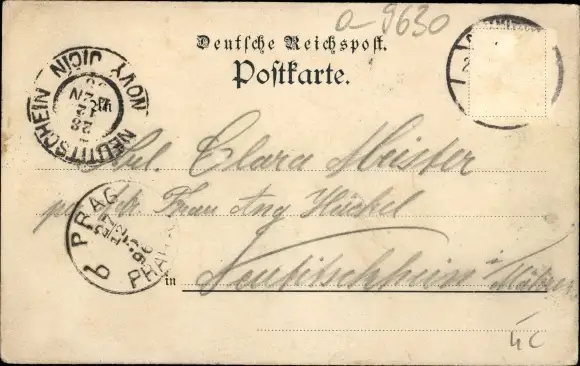 a-9630
Deutsche Reichspost.
Postkarte.
NEUTITSCHEIN NOVÝ JIČÍN
28
12
Frl. Clara Meister
Frau Ang Hückel
PRAG
PRAHA
in Neutitschein i/Mähren